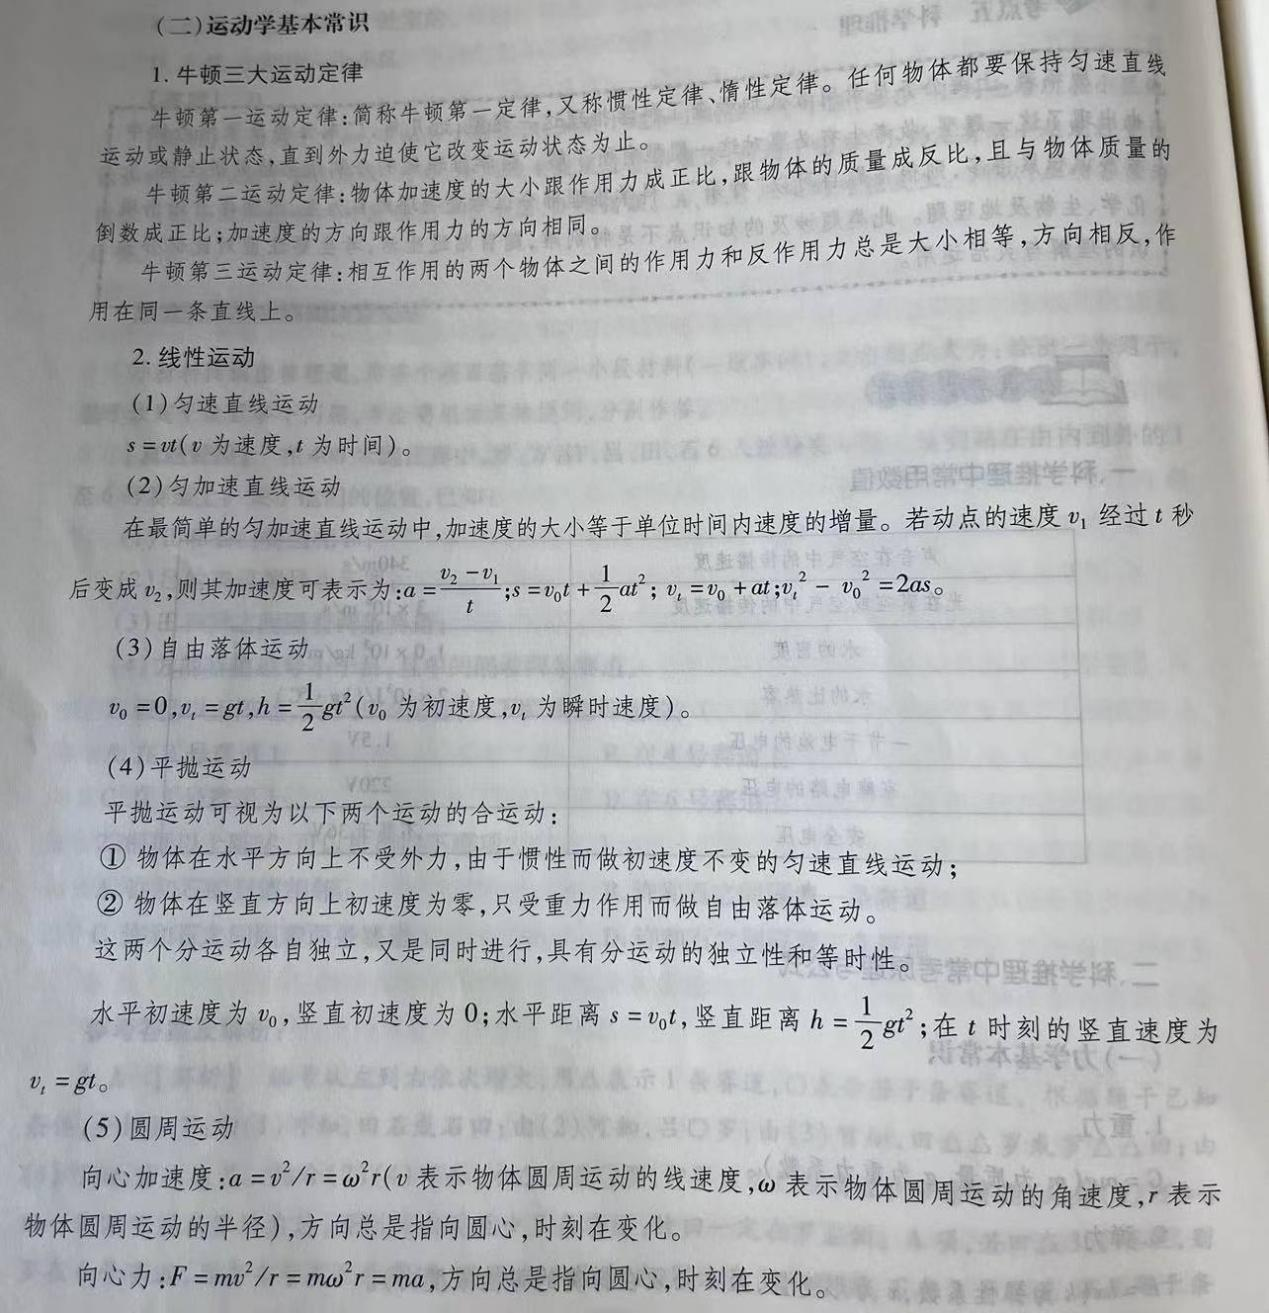 (二)运动学基本常识
1. 牛顿三大运动定律
牛顿第一运动定律:简称牛顿第一定律,又称惯性定律、惰性定律。任何物体都要保持匀速直线
运动或静止状态,直到外力迫使它改变运动状态为止。
牛顿第二运动定律:物体加速度的大小跟作用力成正比,跟物体的质量成反比,且与物体质量的
倒数成正比;加速度的方向跟作用力的方向相同。
牛顿第三运动定律:相互作用的两个物体之间的作用力和反作用力总是大小相等,方向相反,作
用在同一条直线上。
2. 线性运动
(1)匀速直线运动
s=vt(v 为速度,t 为时间)。
(2)匀加速直线运动
在最简单的匀加速直线运动中,加速度的大小等于单位时间内速度的增量。若动点的速度 v₁ 经过 t 秒
后变成 v₂,则其加速度可表示为:a=\frac{v₂-v₁}{t};s=v₀t+\frac{1}{2}at²; vₜ=v₀+at;vₜ²-v₀²=2as。
(3)自由落体运动
v₀=0,vₜ=gt,h=\frac{1}{2}gt²(v₀ 为初速度,vₜ 为瞬时速度)。
(4)平抛运动
平抛运动可视为以下两个运动的合运动:
① 物体在水平方向上不受外力,由于惯性而做初速度不变的匀速直线运动;
② 物体在竖直方向上初速度为零,只受重力作用而做自由落体运动。
这两个分运动各自独立,又是同时进行,具有分运动的独立性和等时性。
水平初速度为 v₀,竖直初速度为 0;水平距离 s=v₀t,竖直距离 h=\frac{1}{2}gt²;在 t 时刻的竖直速度为
vₜ=gt。
(5)圆周运动
向心加速度:a=v²/r=ω²r(v 表示物体圆周运动的线速度,ω 表示物体圆周运动的角速度,r 表示
物体圆周运动的半径),方向总是指向圆心,时刻在变化。
向心力:F=mv²/r=mω²r=ma,方向总是指向圆心,时刻在变化。